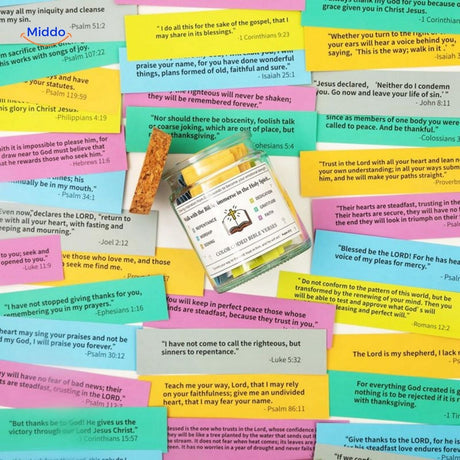 Middo
way all my iniquity and cleanse
m my sin.
-Psalm 51:2
" I do all this for the sake of the gospel, that I
may share in its blessings."
-1 Corinthians 9:23
grace given you in Christ Jesus.
-1 Corinthians
sacrifice thank
his works with songs of joy.
-Psalm 107:22
praise your name, for you have done wonderful
things, plans formed of old, faithful and sure."
-Isaiah 25:1
Whether you turn to the right
your ears will hear a voice behind you,
saying, "This is the way; walk in it."
-Isaiah
ways and have
your statutes.
-Psalm 119:59
the righteous will never be shaken;
they will be remembered forever."
Jesus declared, 'Neither do I condemn
you. Go now and leave your life of sin.'"
- John 8:11
his glory in Christ Jesus.
-Philippians 4:19
"Nor should there be obscenity, foolish talk
or coarse joking, which are out of place, but
thanksgiving."
Ephesians 5:4
since as members of one body you were
called to peace. And be thankful."
-Colossians
faith it is impossible to please him, for
draw near to God must believe that
that he rewards those who seek him."
-Hebrews 11:6
"Trust in the Lord with all your heart and lean n
your own understanding; in all your ways subm
him, and he will make your paths straight."
-Proverbs
his
ually be in my mouth."
-Psalm 34:1
Even now," declares the LORD, "return to
me with all your heart, with fasting and
weeping and mourning."
-Joel 2:12
REPENTANCE
WORSHIP
GIVING
MEDITATION
GRATITUDE
FAITH
COLOR CODED BIBLE VERSES
"Their hearts are steadfast, trusting in the
Their hearts are secure, they will have no f
the end they will look in triumph on their f
-Psalm
to you; seek and
opened to you."
-Luke 11:9
those who love me, and those
seek me find me.
"Blessed be the LORD! For he has hear
voice of my pleas for mercy."
-Psalm
"I have not stopped giving thanks for you,
remembering you in my prayers."
-Ephesians 1:16
"Do not conform to the pattern of this world, but be
transformed by the renewing of your mind. Then you
will be able to test and approve what God' s will
pleasing and perfect will."
-Romans 12:2
You will keep in perfect peace those whose
minds are steadfast, because they trust in you."
heart may sing your praises and not be
my God, I will praise you forever."
-Psalm 30:12
"I have not come to call the righteous, but
sinners to repentance."
-Luke 5:32
The Lord is my shepherd, I lack n
-Psalm
will have no fear of bad news; their
are steadfast, trusting in the LORD."
-Psalm 112:7
Teach me your way, Lord, that I may rely
on your faithfulness; give me an undivided
heart, that I may fear your name.
-Psalm 86:11
For everything God created is g
is to be rejected if it is r
with thanksgiving.
-1 Tim
"But thanks be to God! He gives us the
victory through our Lord Jesus Christ."
1 Corinthians 15:57
Blessed is the one who trusts in the Lord, whose confidence
They will be like a tree planted by the water that sends out it
the stream. It does not fear when heat comes; its leaves are
It has no worries in a year of drought and never fails
"Give thanks to the LORD, for he is
his steadfast love endures forever
-Psalm
"If we con